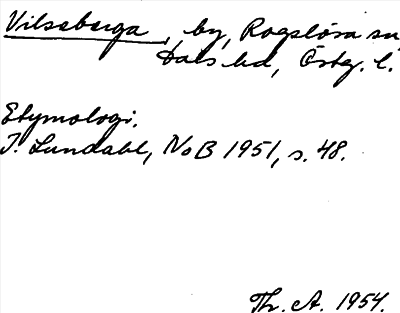 Vilseberga, by, Rogslösa sn
Dals hd, Östg. l.
Etymologi.
I. Lundahl, NoB 1951, s. 48.
Th. A. 1954.